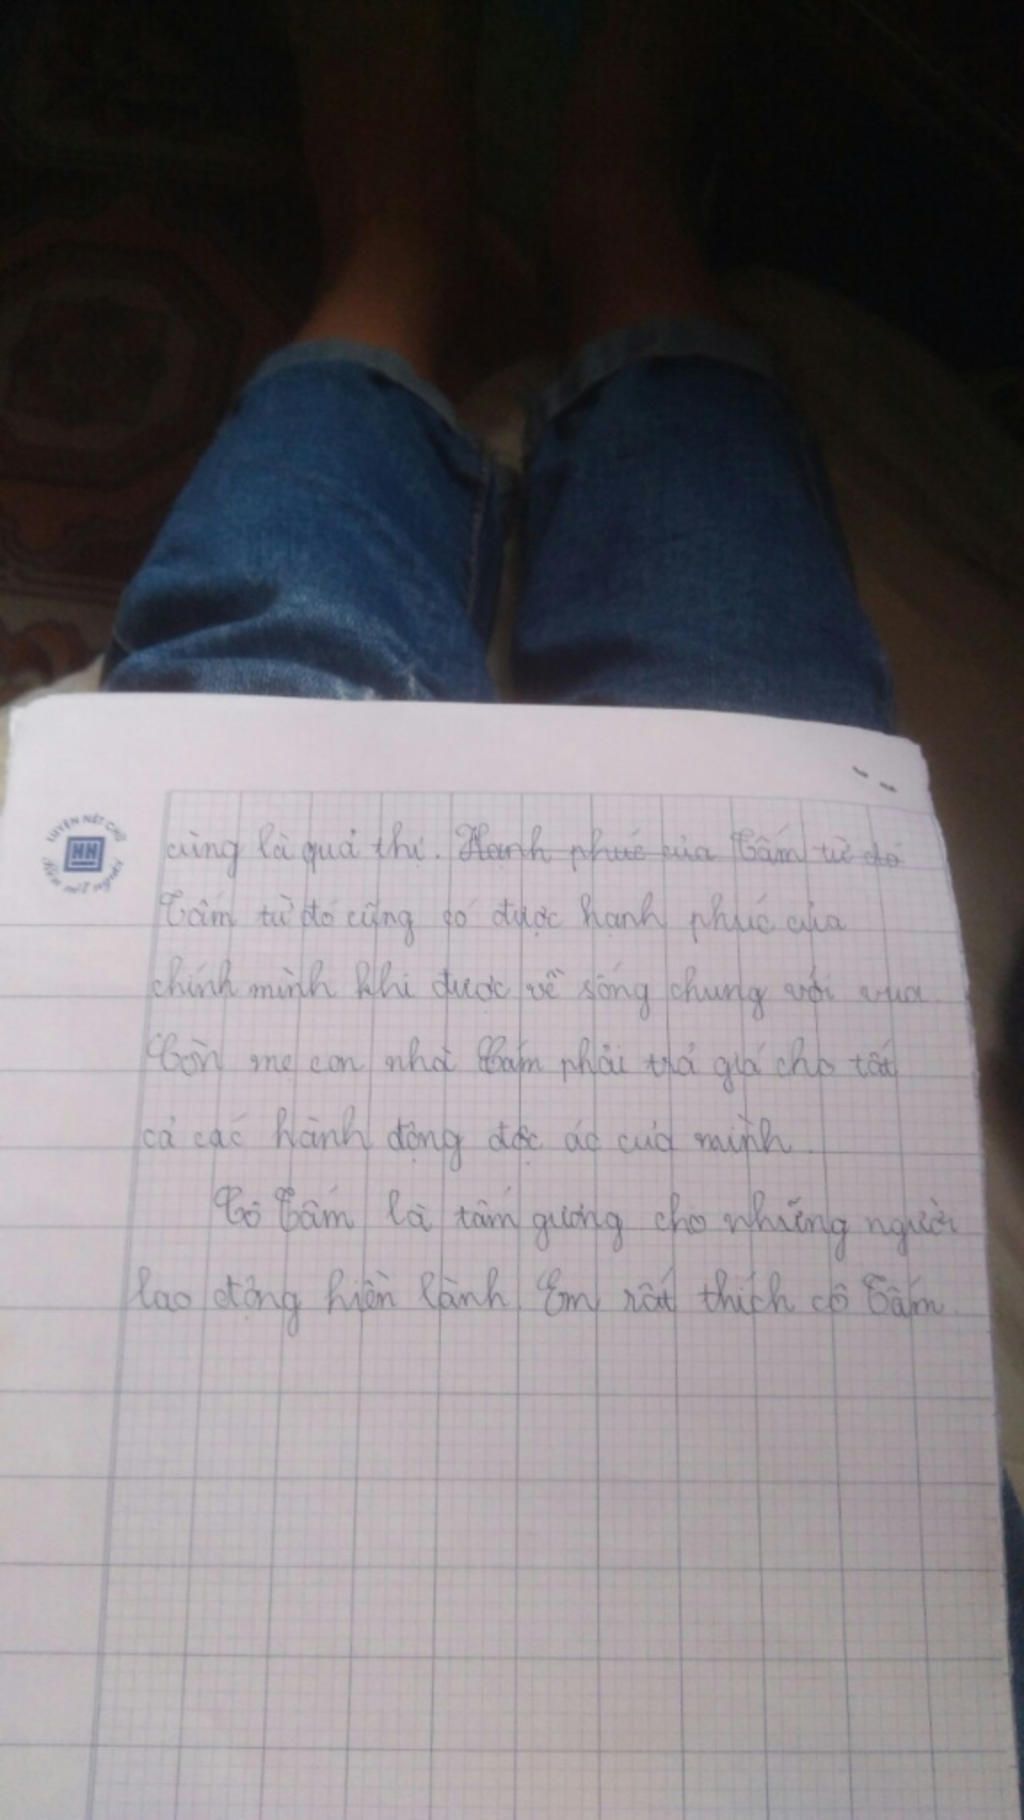 LUYỆN NÉT CHỮ
HH
Rèn nết người
cùng là quả thị. Hạnh phúc của Tấm từ đó
Tấm từ đó cũng có được hạnh phúc của
chính mình khi được về sống chung với vua.
Còn mẹ con nhà Cám phải trả giá cho tất
cả các hành động độc ác của mình.
Cô Tấm là tấm gương cho những người
lao động hiền lành. Em rất thích cô Tấm.